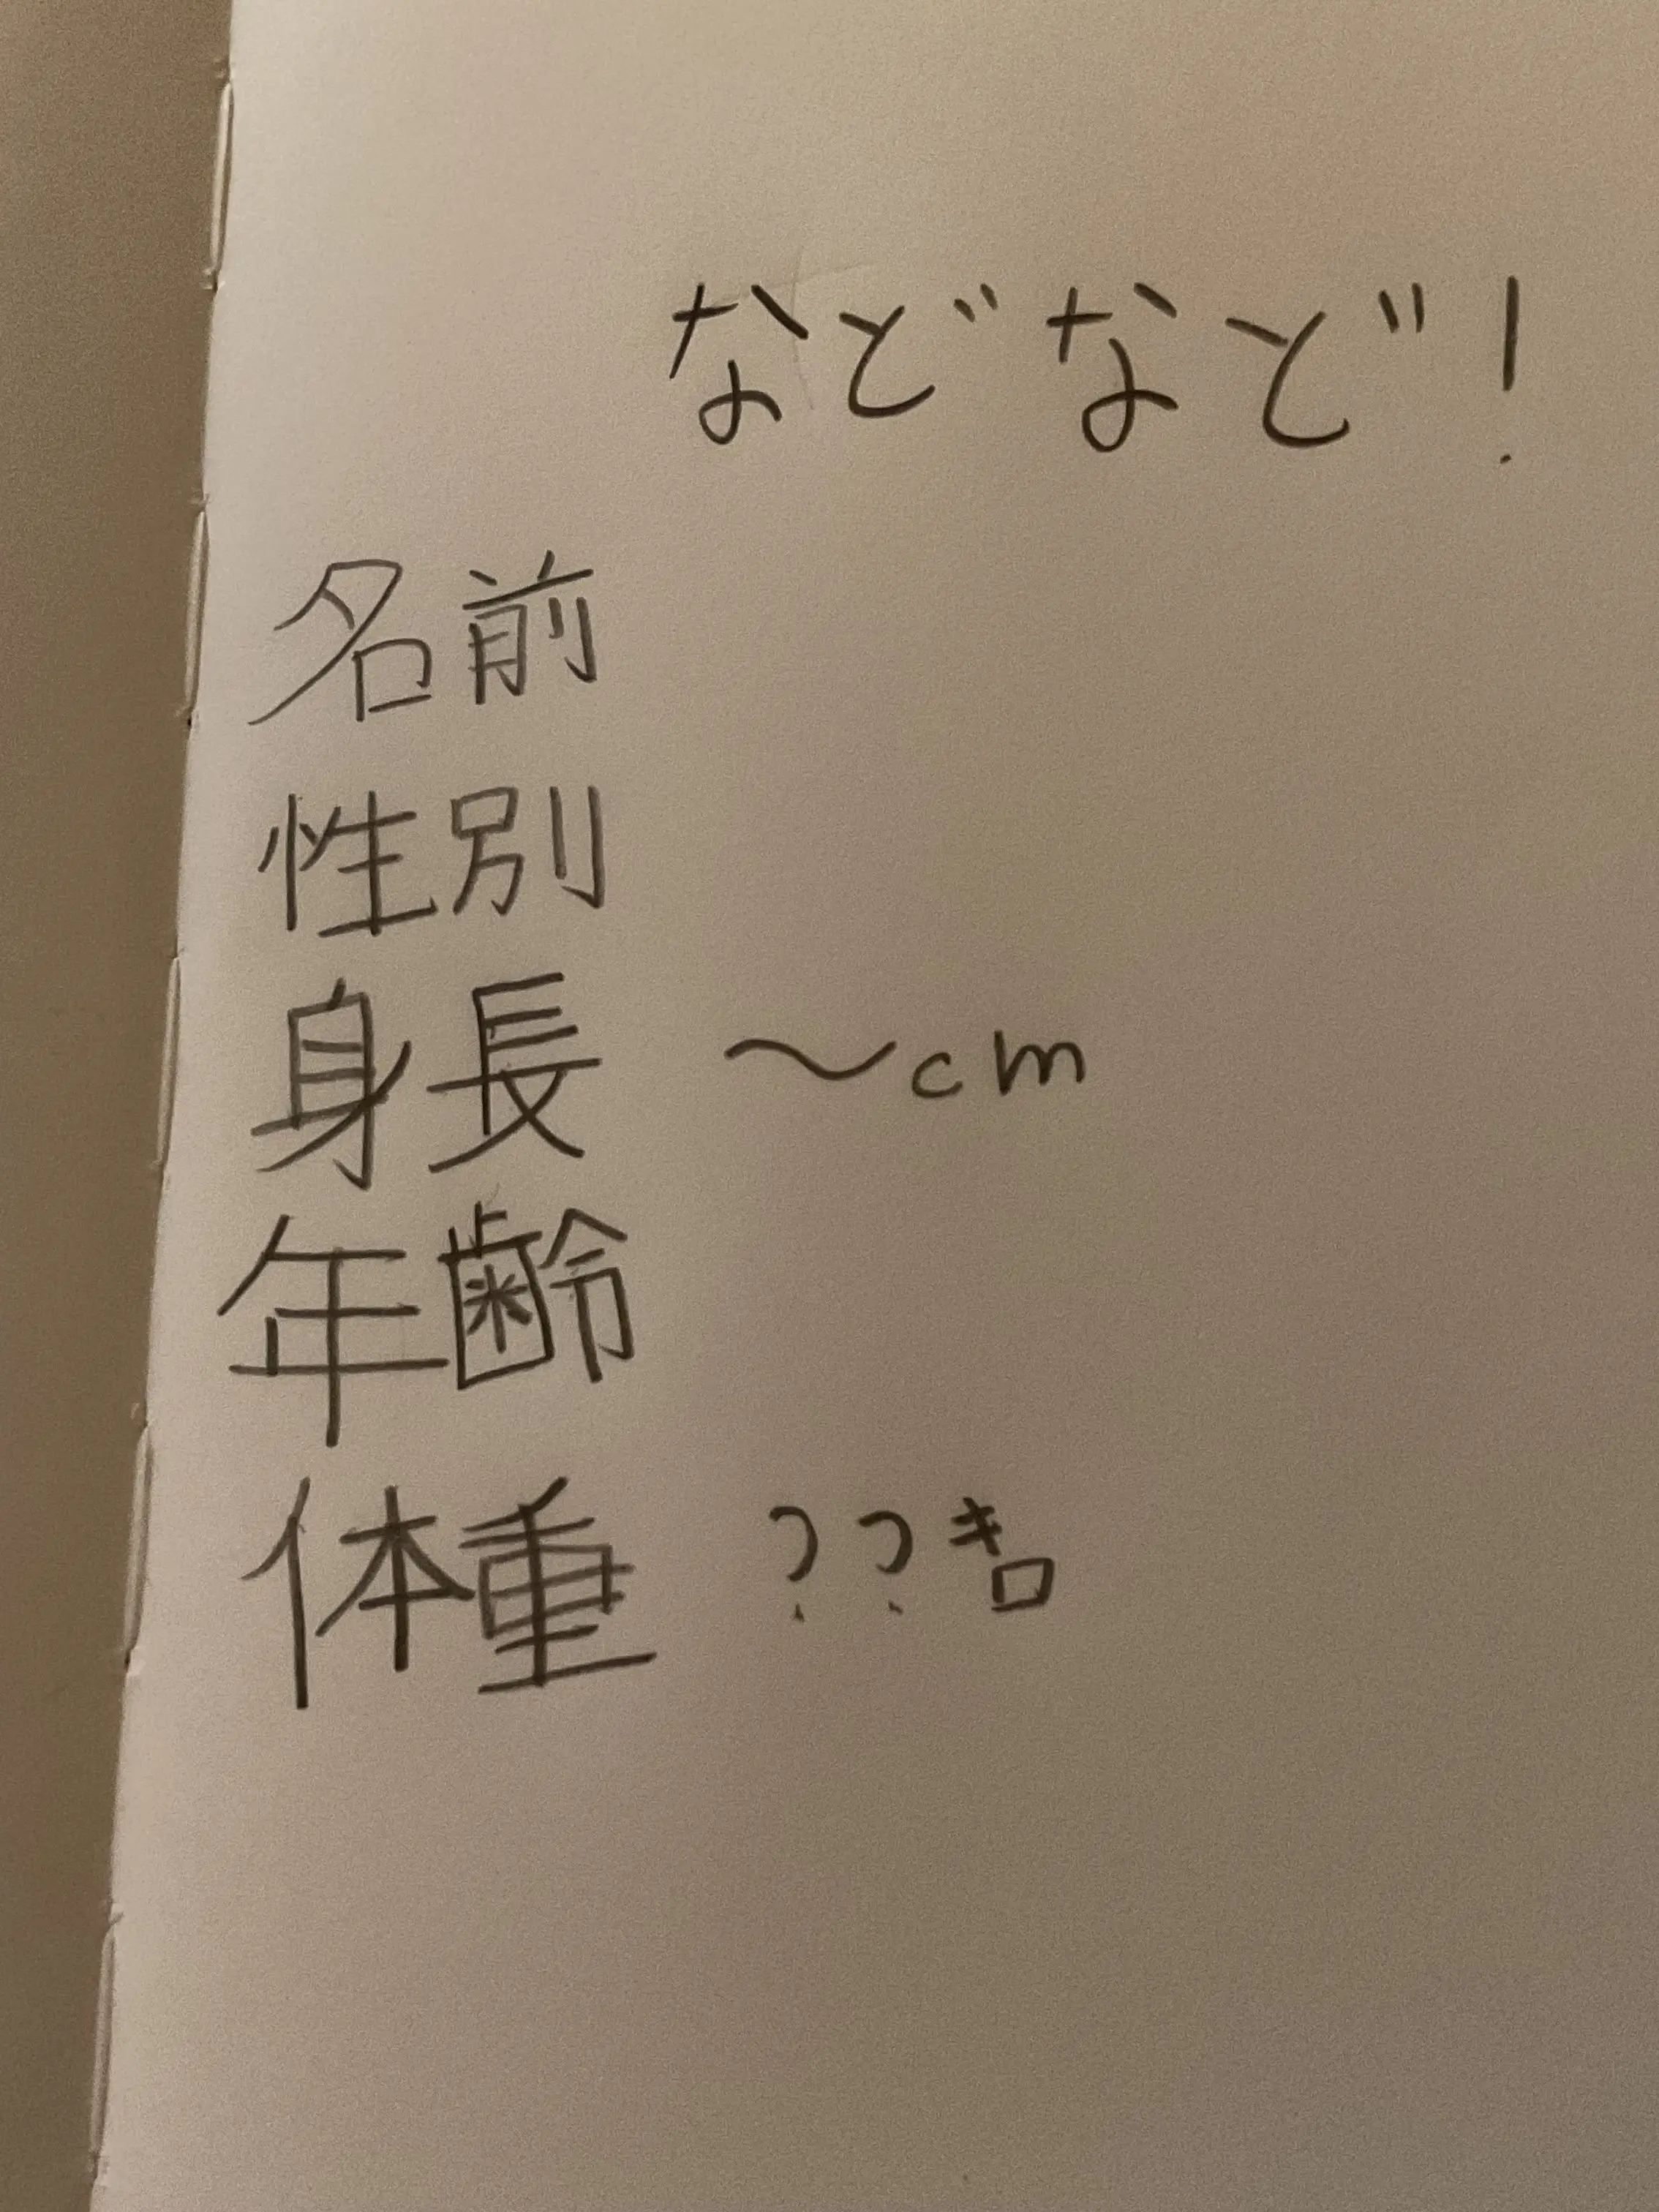 などなど!
名前
性別
身長 〜cm
年齢
体重 ??キロ